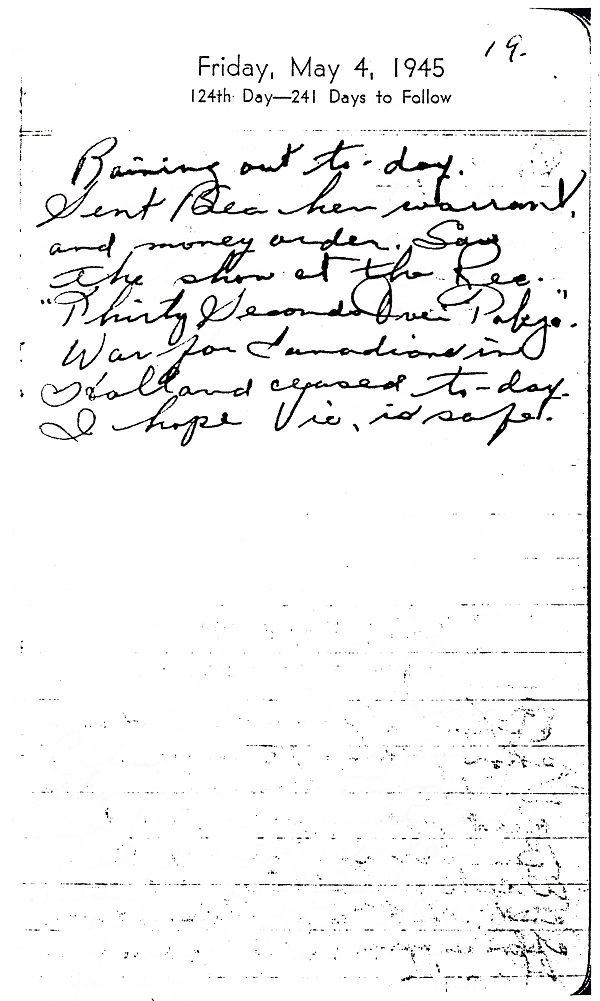 19.
Friday, May 4, 1945
124th Day—241 Days to Follow
Raining out to-day.
Sent Bea her warrant,
and money order. Saw
the show at the Rec.
"Thirty Seconds Over Tokyo".
War for Canadians in
Holland ceased to-day.
I hope Vic, is safe.